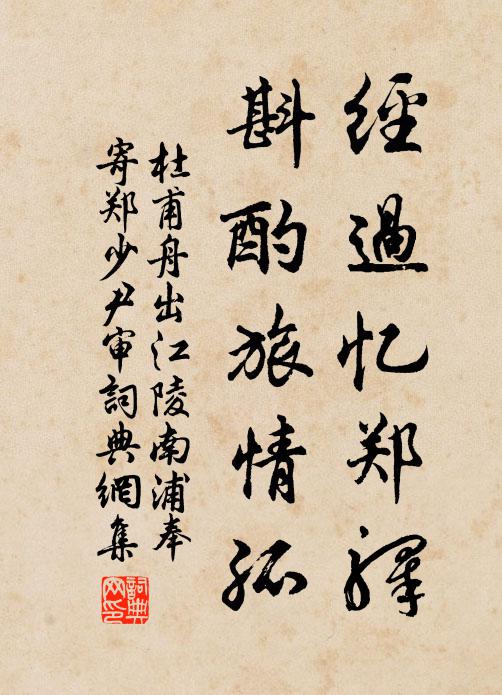 經過忆郑驿
斟酌旅情孤
杜甫舟出江陵南浦奉
寄郑少尹审詞典網集
詞典
网印